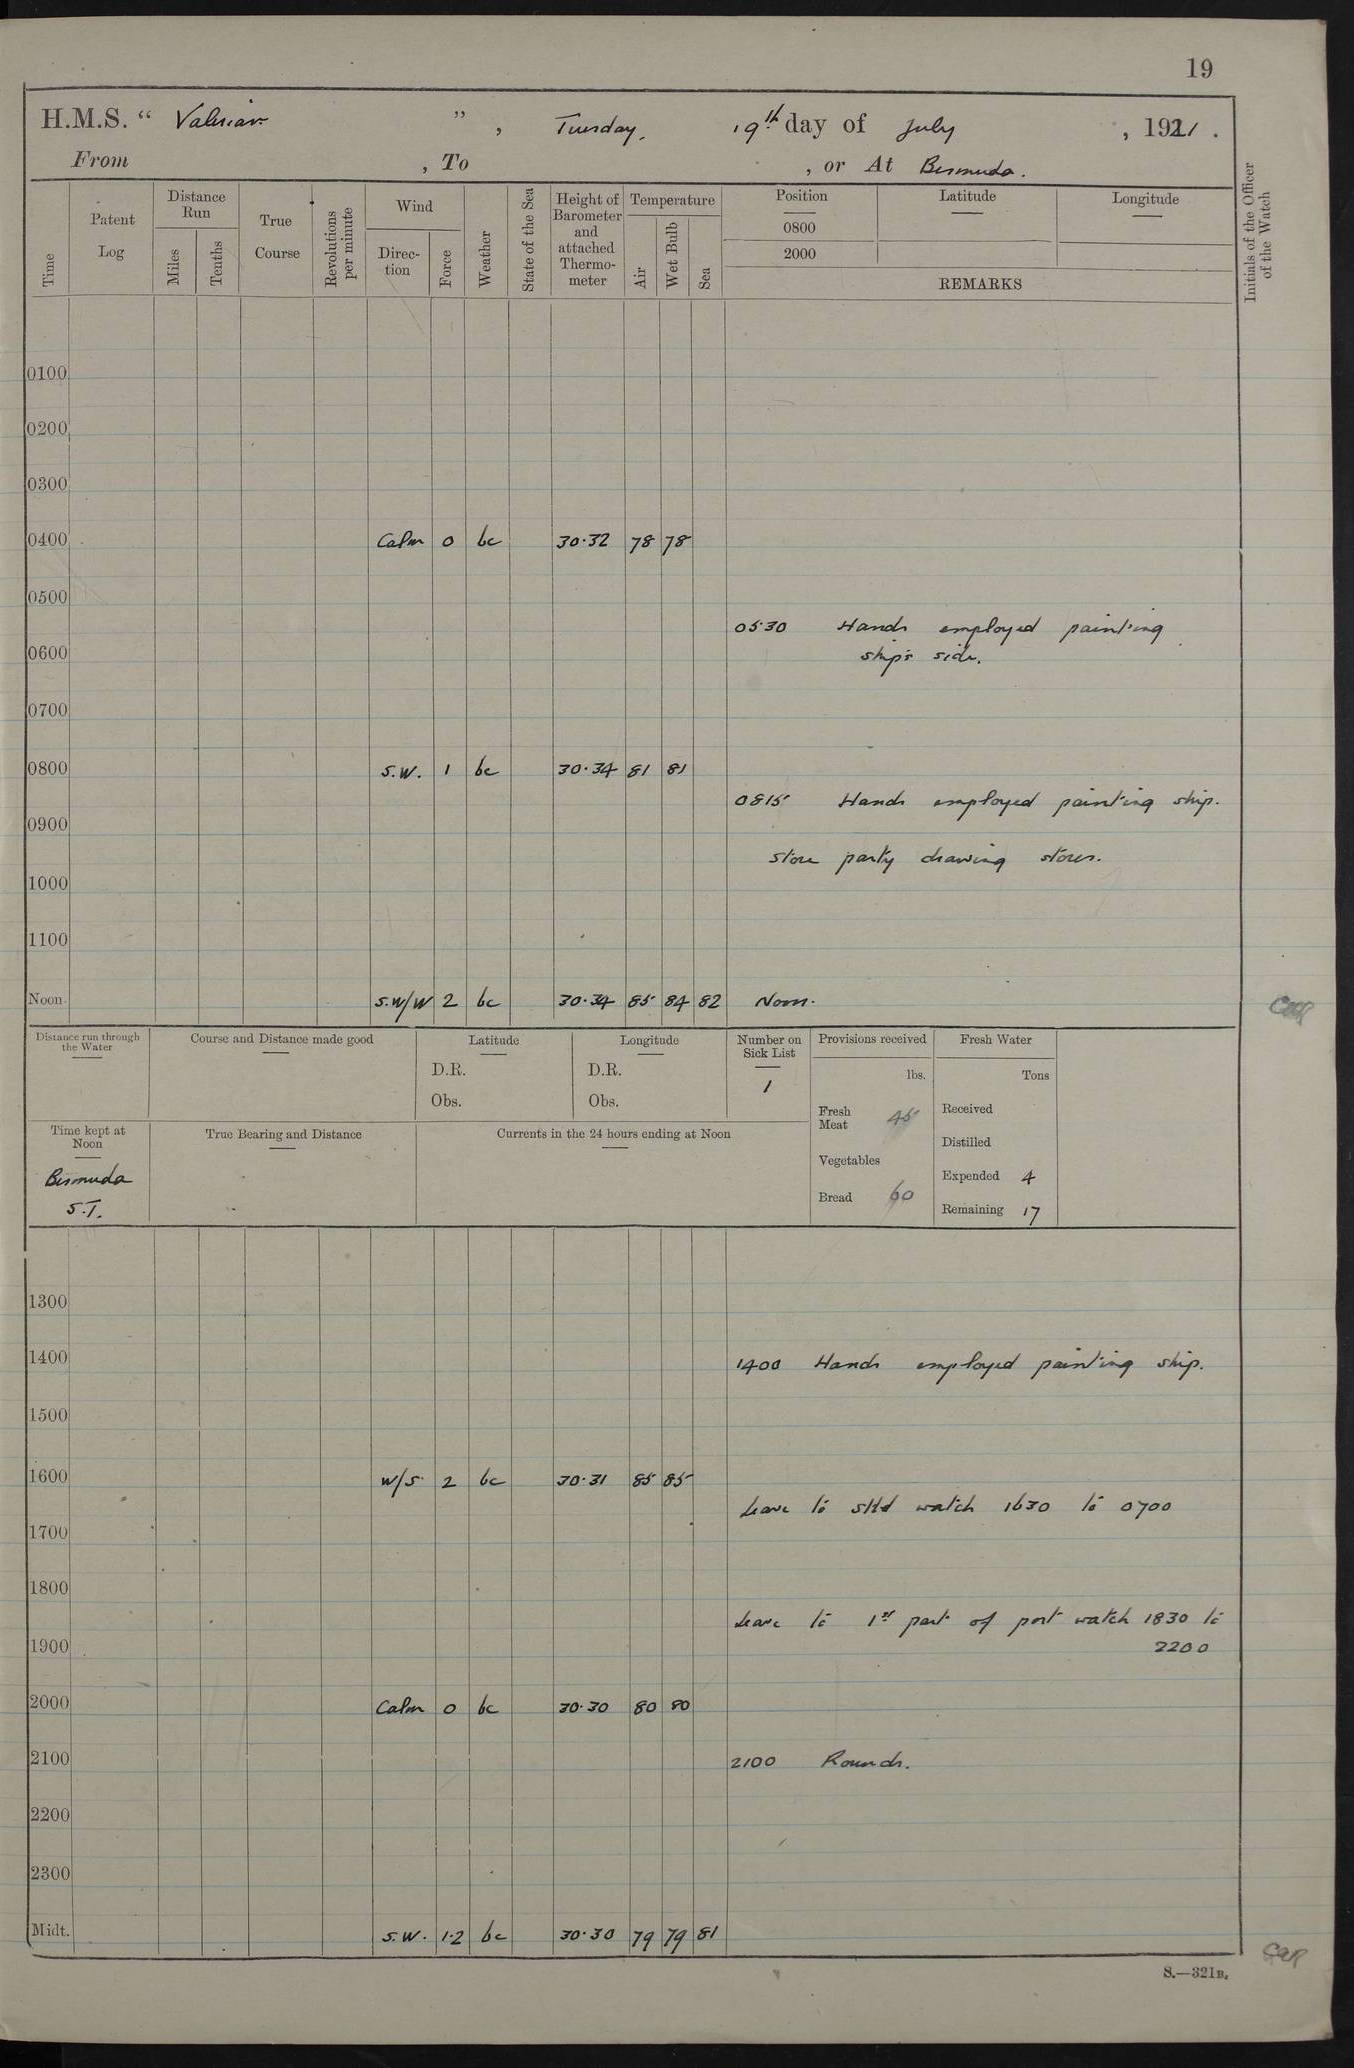 19
H.M.S. “ Valerian ” , Tuesday, 19th day of July , 1921 .
From , To , or At Bermuda.
Time Patent Log Distance Run Miles Tenths True Course Revolutions per minute Wind Direc-tion Force Weather State of the Sea Height of Barometer and attached Thermo-meter Temperature Air Wet Bulb Sea Position 0800 2000 Latitude Longitude REMARKS Initials of the Officer of the Watch
0100
0200
0300
0400 Calm 0 bc 30·32 78 78
0500
0530 Hands employed painting
0600 ship's side.
0700
0800 S.W. 1 bc 30·34 81 81
0815 Hands employed painting ship.
0900
Store party drawing stores.
1000
1100
Noon S.W/W 2 bc 30·34 85 84 82 Noon.
Distance run through the Water Course and Distance made good Latitude Longitude Number on Sick List Provisions received Fresh Water
D.R. D.R. 1 lbs. Tons
Obs. Obs. Fresh Meat 45 Received
Time kept at Noon True Bearing and Distance Currents in the 24 hours ending at Noon Distilled
Vegetables
Bermuda Expended 4
S.T. Bread 60 Remaining 17
1300
1400 1400 Hands employed painting ship.
1500
1600 W/S 2 bc 30·31 85 85
Leave to Stbd watch 1630 to 0700
1700
1800
Leave to 1st part of port watch 1830 to
1900 2200
2000 Calm 0 bc 30·30 80 80
2100 2100 Rounds.
2200
2300
Midt. S.W. 1·2 bc 30·30 79 79 81
S.—321B.